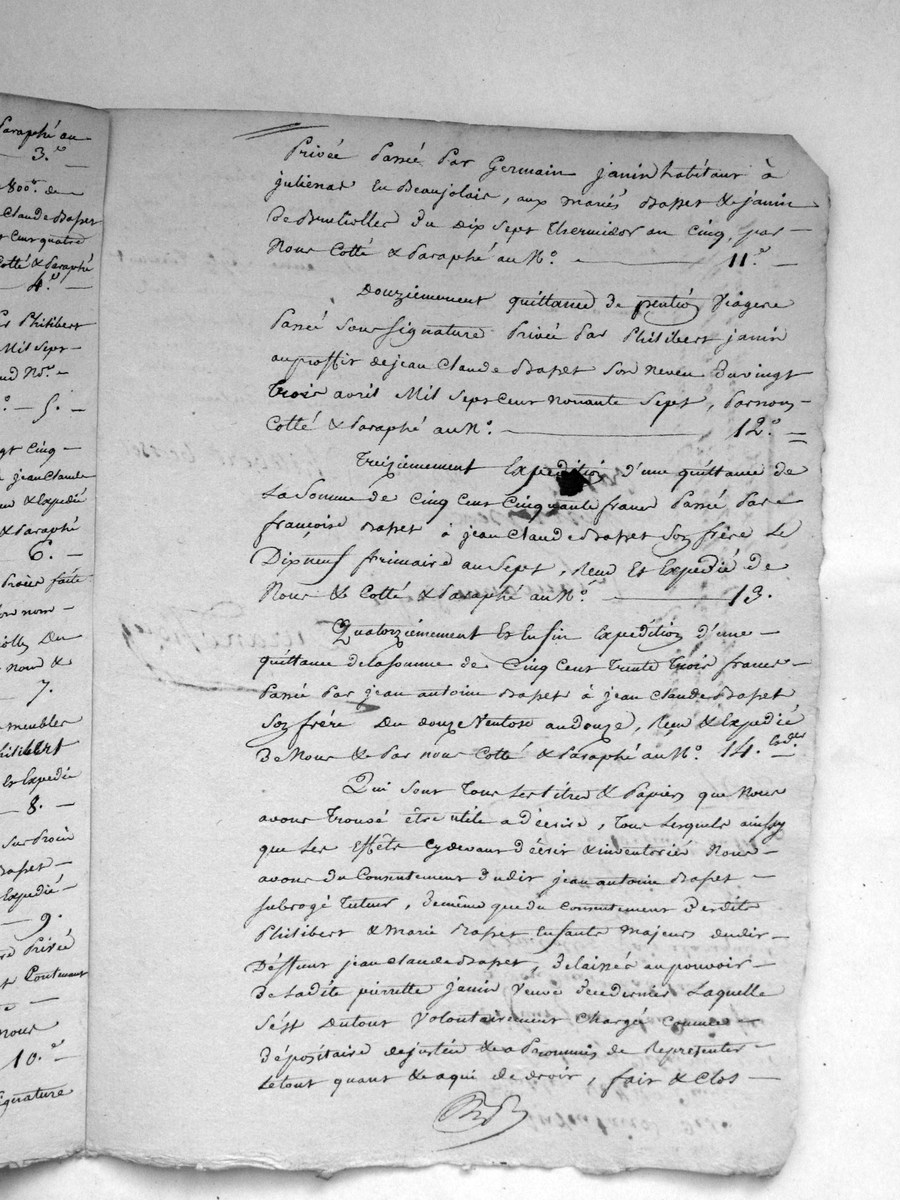 Paraphé au
3.e
800tt. de
Claude Dapet
Cent quatre
Cotté & Paraphé
4.e
Philibert
Mil Sept
5.
vingt Cinq
jean Claude
& Expedié
& Paraphé
6.
faite
7.
meubles
Philibert
Et Expedié
8.
Dapet
Expedié
9.
Privée
Contenant
nous
10.e
Signature
Privée Passée Par Germain janin habitant à
julienas En Beaujolais, aux mariés Dapet & janin
De Du dix Sept thermidor an Cinq, par
Nous Cotté & Paraphé au N.o 11.e
Douziemement quittance de pention Viagere
Passée Sous Signature Privée Par Philibert janin
au proffit de jean Claude Dapet Son neveu Du vingt
trois avril Mil Sept Cent nonante Sept, Par nous
Cotté & Paraphé au N.o 12.o
Treiziemement Expedition d'une quittance de
La Somme de Cinq Cent Cinquante francs Passée Par
françoise Dapet à jean Claude Dapet Son frère Le
Dix neuf frimaire an Sept, Reçu Et Expedié de
Nous & Cotté & Paraphé au N.o 13.
Quatorziemement Et Enfin Expedition d'une
quittance de la somme de Cinq Cent trente trois francs
Passée Par jean antoine Dapet à jean Claude Dapet
Son frère Du douze Ventose an douze, Reçu & Expedié
De Nous & Par nous Cotté & Paraphé au N.o 14.
Qui Sont Tous Les titres & Papiers que Nous
avons Trouvé être utile a décrire, Tous Lesquels ainssy
que Les Effets Cy devant décrit & inventoriés Nous
avons du Consentement dudit jean antoine Dapet
Subrogé Tuteur, de même que du Consentement Desdits
Philibert & Marie Dapet Enfants Majeurs dudit
Déffunt jean Claude Dapet, délaissés au pouvoir
De Ladite pierrette janin Veuve de ce dernier Laquelle
S'est Du tout Volontairement Chargé Comme
Dépositaire de justice & a Promis de Representer
Le tout quant & a qui de droit, fait & Clos